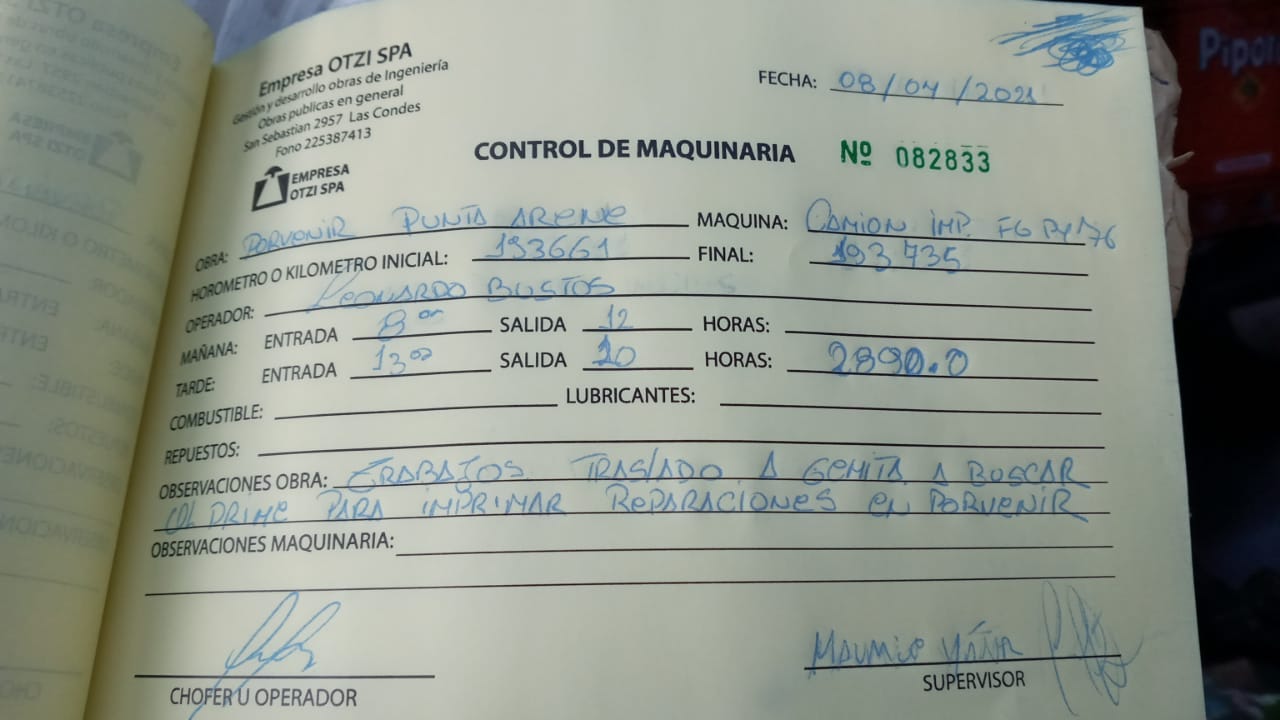 Empresa OTZI SPA
Gestión y desarrollo obras de Ingeniería
Obras publicas en general
San Sebastian 2957 Las Condes
Fono 225387413
EMPRESA
OTZI SPA
FECHA: 08/04/2021
CONTROL DE MAQUINARIA Nº 082833
OBRA: PORVENIR PUNTA ARENE MAQUINA: CAMION IMP. FG
HOROMETRO O KILOMETRO INICIAL: 193661 FINAL: 193735
OPERADOR: LEONARDO BUSTOS
MAÑANA: ENTRADA 8 00 SALIDA 12 HORAS:
TARDE: ENTRADA 13 00 SALIDA 20 HORAS: 2890.0
COMBUSTIBLE: LUBRICANTES:
REPUESTOS:
OBSERVACIONES OBRA: TRABAJOS. TRASLADO A GEMITA A BUSCAR
PRIME PARA IMPRIMAR REPARACIONES EN PORVENIR
OBSERVACIONES MAQUINARIA:
CHOFER U OPERADOR
MAURICIO YÁÑEZ
SUPERVISOR
Pipor